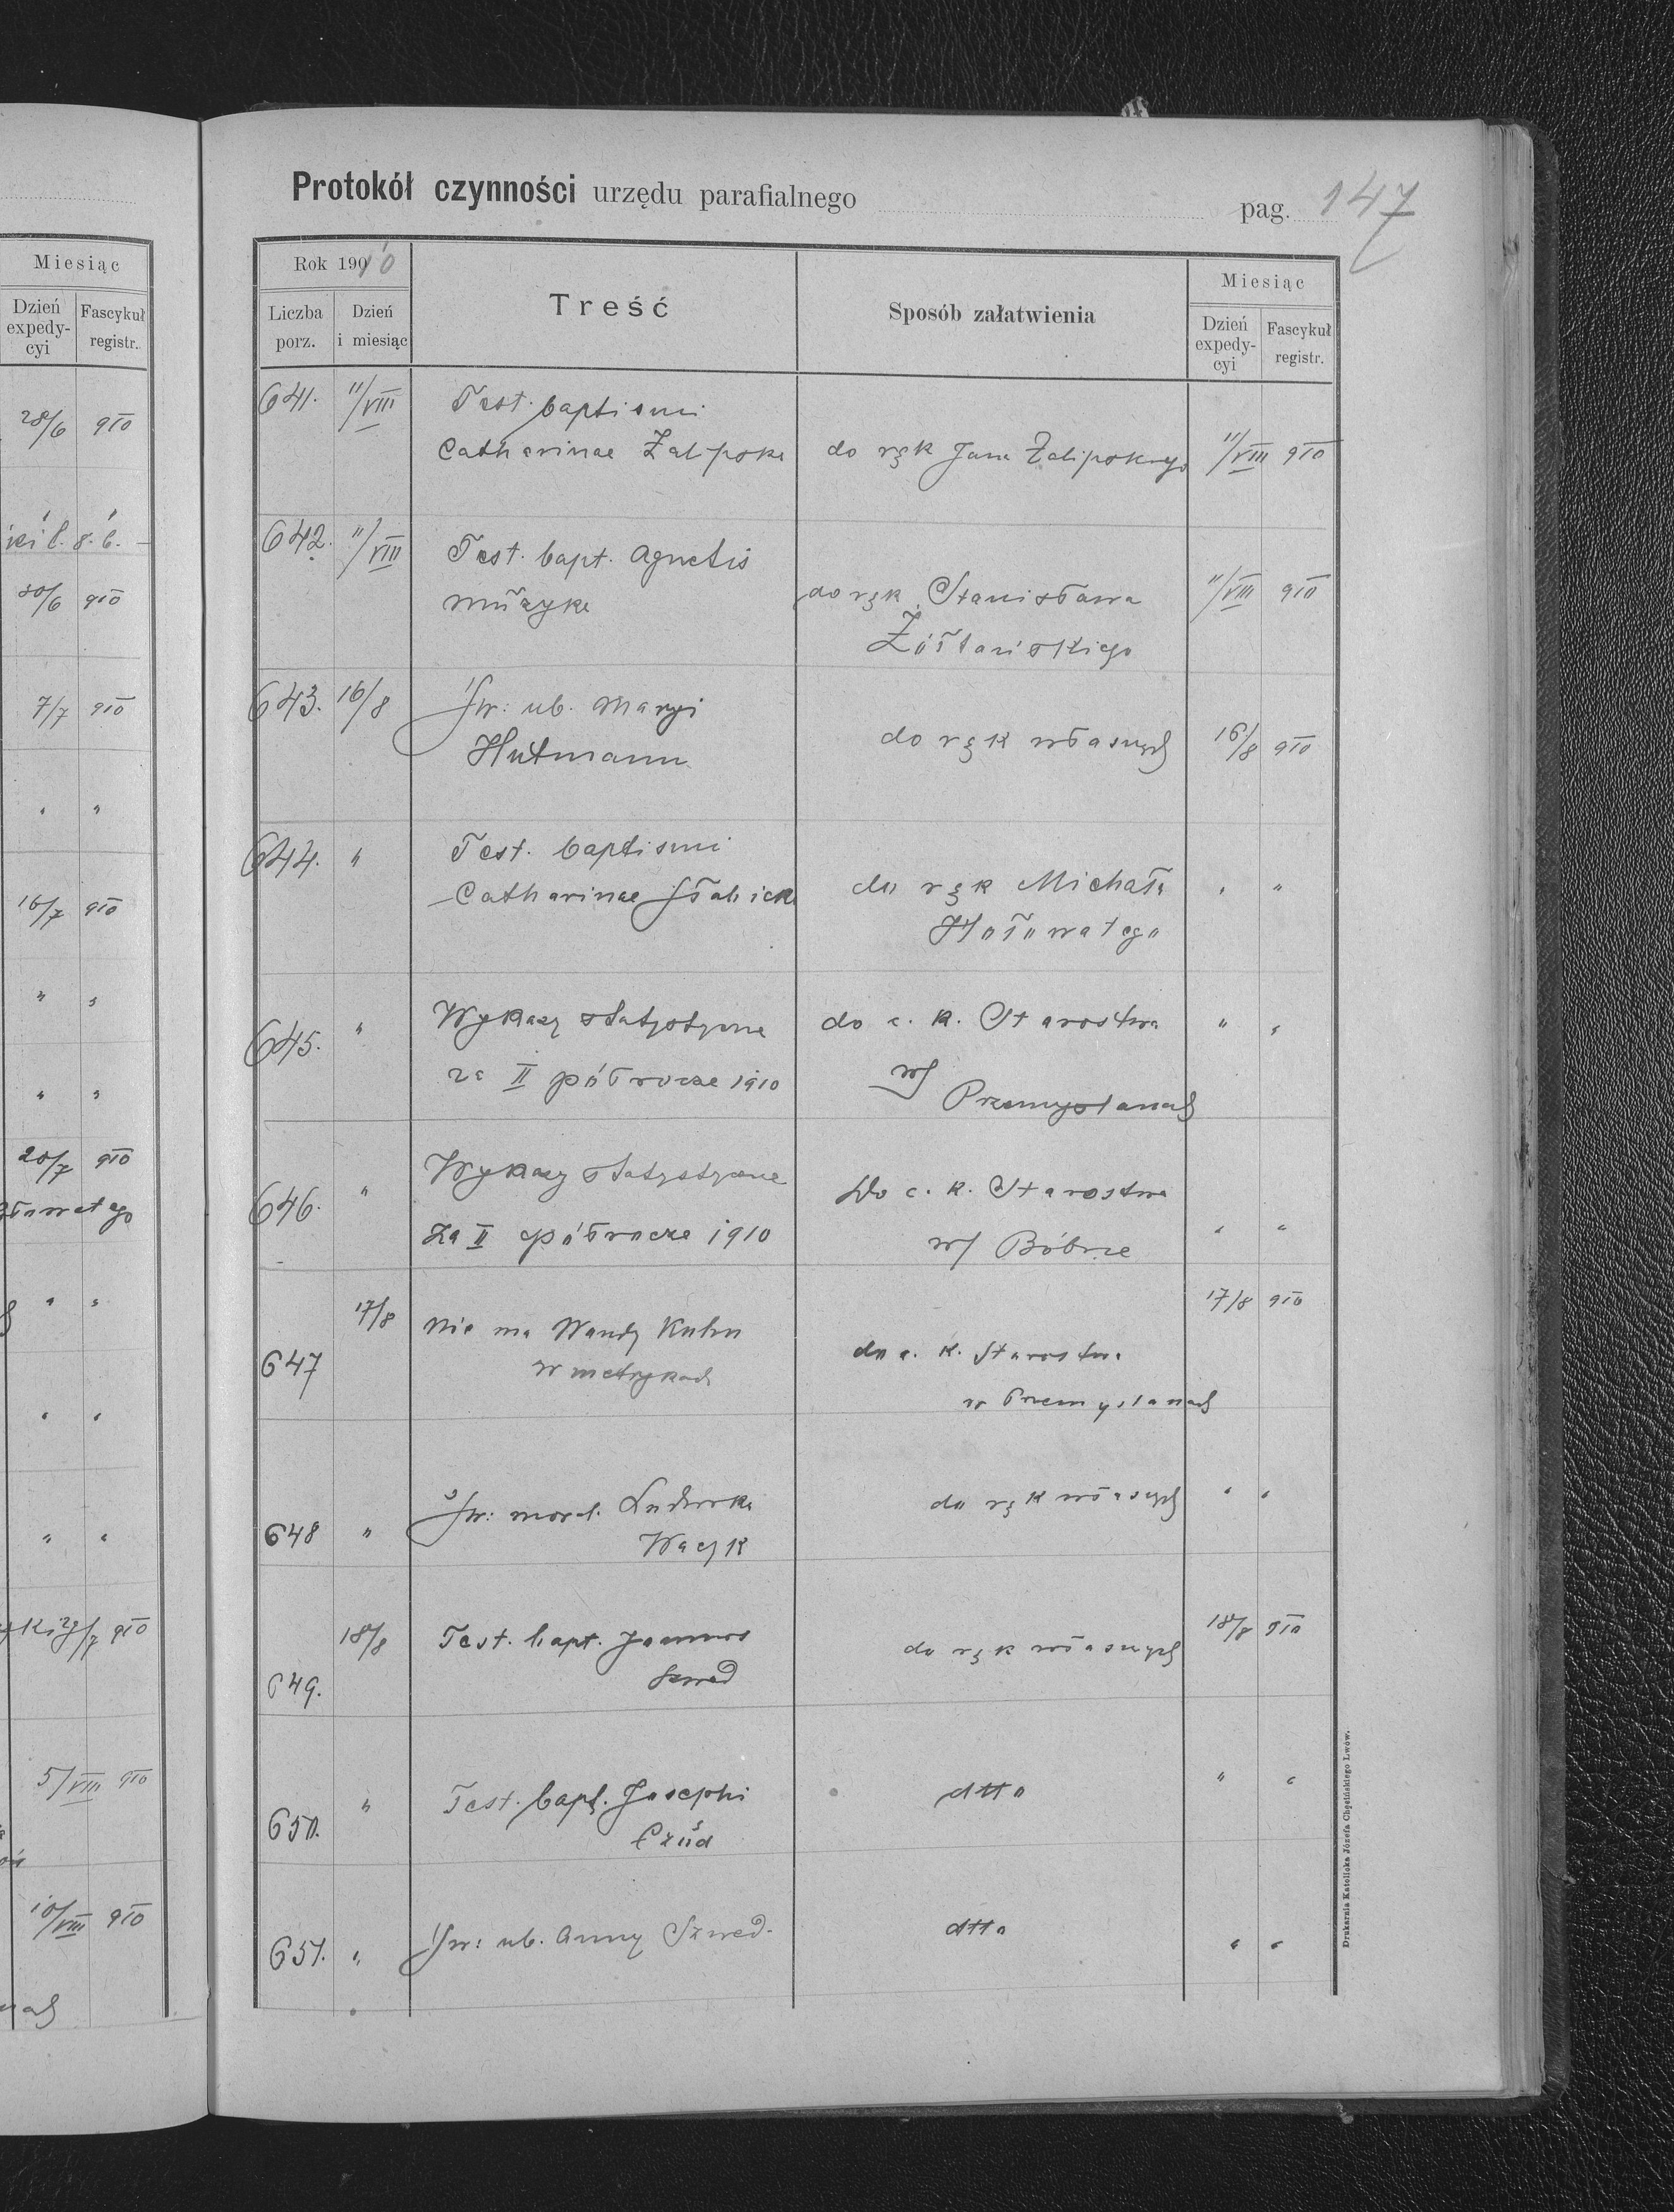 Miesiąc
Dzień expedycyi Fascykuł registr.
28/6 910
30/6 910
7/7 910
" "
16/7 910
" "
" "
20/7 910
" "
" "
" "
/7 910
5/VIII 910
10/VIII 910
Protokół czynności urzędu parafialnego pag. 147
Rok 1910 Treść Sposób załatwienia Miesiąc
Liczba porz. Dzień i miesiąc Dzień expedycyi Fascykuł registr.
641. 11/VIII Test. baptismi
Catharinae Zalipska do rąk Jana Zalipskiego 11/VIII 910
642. 11/VIII Test. bapt. Agnetis
Muzyka do rąk Stanisława 11/VIII 910
Żółtańskiego
643. 16/8 Św: ub. Maryi
Hutmann do rąk własnych 16/8 910
644. " Test. baptismi
Catharinae Słabicka do rąk Michała " "
Hołowatego
645. " Wykazy statystyczne do c. k. Starostwa " "
za II półrocze 1910 w Przemyślanach
646. " Wykazy statystyczne Do c. k. Starostwa
za II półrocze 1910 w Bóbrce " "
647 17/8 Nie ma Wandy Kuhn 17/8 910
w metrykach do c. k. Starostwa
w Przemyślanach
648 " Św: moral. Ludwika do rąk własnych " "
Wacyk
649. 18/8 Test. bapt. Joannes do rąk własnych 18/8 910
Szwed
650. " Test. bapt. Josephi dtto " "
651. " Św: ub. Anny Szwed. dtto " "
Drukarnia Katolicka Józefa Chęcińskiego Lwów.